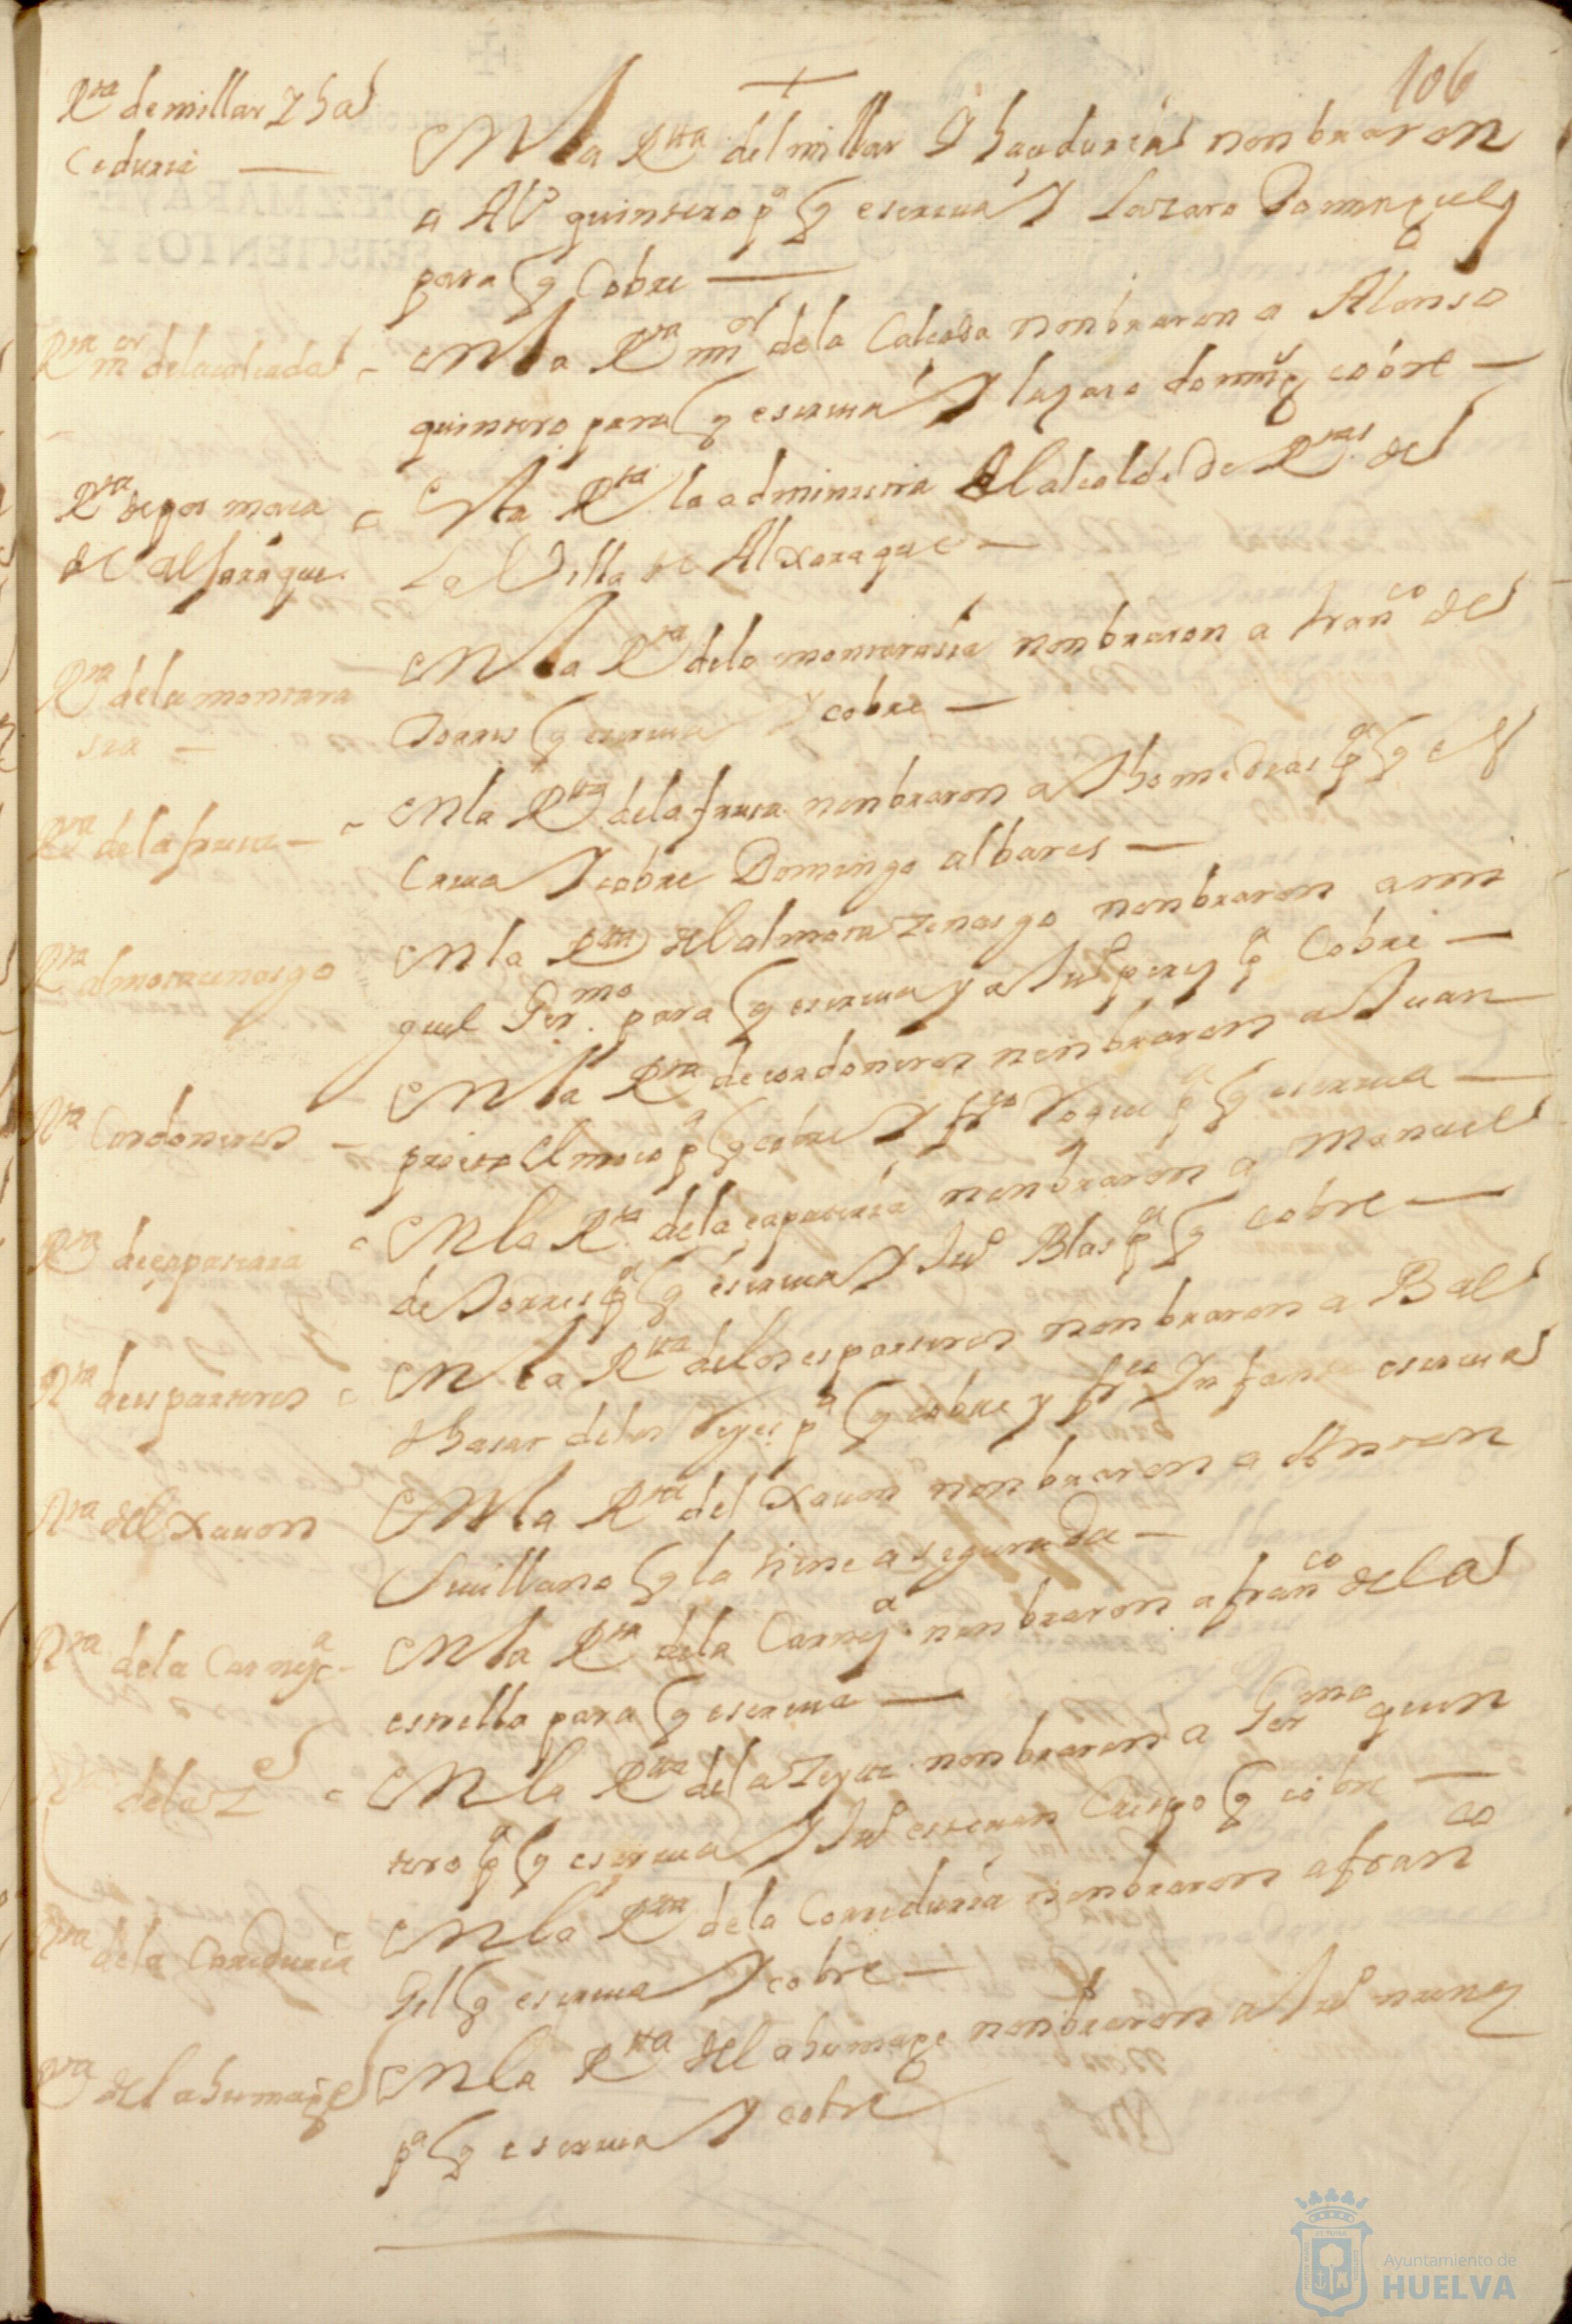 106
Rta de millar Y ha
ceduria
En la Rta del millar Y haceduria nonbraron
a Alº quintero pª q escriua Y Lazaro Domingues
para q Cobre
Rta mor de la calcada
En la Rta mor de la Calcada nonbraron a Alonso
quintero para q escriua Y lazaro domingz cobre
Rta de
de aljaraque
Esta Rta la administra el alcalde de Rtas de
La Villa de Alxaraque
Rta de la montara
sia
En la Rta de la montarasia nonbraron a franco de
Torres q escriua Y cobre
Rta de la fruta
En la Rta de la fruta nonbraron a Thome Dias pª q es
criua Y cobre Domingo albares
Rta almotacenasgo
En la Rta del almotazenasgo nonbraron a mi
guel Germo para q escriua y a Juº perez pª Cobre
Rta Cordoneros
En la Rta de cordoneros nonbraron a Juan
prieto el moco pª q cobre Y frco Roque pª q escriua
Rta de çapateria
En la Rta de la çapateria nonbraron a Manuel
de Torres pª q escriua Y Juº Blas pª q cobre
Rta de esparteros
En la Rta de los esparteros nonbraron a Bal
thasar de los Reyes pª q cobre y frco Infante escriua
Rta del xauon
En la Rta del xauon nonbraron a Anton
Seuillano q la tiene asegurada
Rta de la Carneª
En la Rta de la Carneª nonbraron a franco de la
estrella para q escriua
de la
En la Rta de la nonbraron a Germo quin
tero pª q escriua Y Juº esteuan Crespo q cobre
Rta de la Correduria
En la Rta de la Correduria nonbraron a franco
Gil q escriua Y cobre
Rta del ahumage
En la Rta del ahumage nonbraron a Juº nunez
pª q escriua Y cobre
Ayuntamiento de
HUELVA